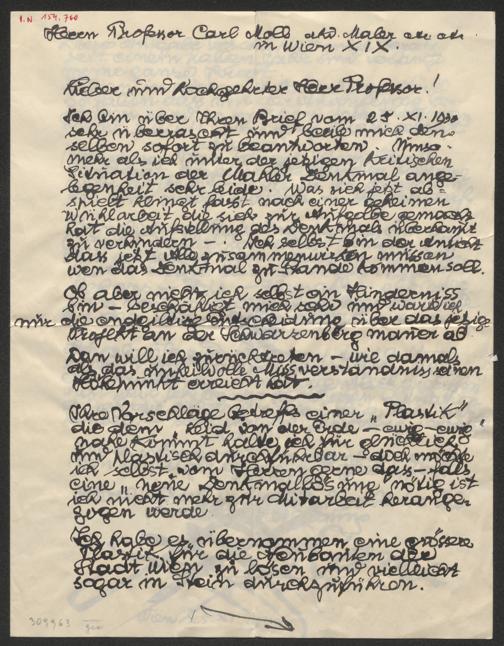 I.N 154.760
Herrn Professor Carl Moll akad. Maler etc etc
in Wien XIX.
Lieber und hochgeehrter Herr Professor!
Ich bin über Ihren Brief vom 25. XI. 1930
sehr überrascht und beeile mich den-
selben sofort zu beantworten. Umso-
mehr als ich unter der jetzigen kritischen
Situation der Mahler Denkmal ange-
legenheit sehr leide. Was sich jetzt ab-
spielt klingt fasst nach einer geheimen
Wühlarbeit die sich zur Aufgabe gemacht
hat die Aufstellung des Denkmals überhaupt
zu verhindern –. Ich selbst bin der Ansicht
dass jetzt Alle zusammenwirken müssen
wen das Denkmal zu Stande kommen soll.
Ob aber nicht ich selbst ein Hinderniss
bin – beschäftigt mich sehr und warte ich
nur die endgiltige Entscheidung über das jetzige
Projekt an der Schwarzenberg mauer ab
Dan will ich zurücktreten – wie damals
als das unheilvolle Missverständniss seinen
Höhepunkt erreicht hat.
Ihre Vorschläge betreffs einer „Plastik"
die dem „Lied von der Erde – ewig – ewig"
nahe kommt halte ich für glücklich
und plastisch durchführbar – doch möchte
ich selbst vom Herzen gerne dass – falls
eine „neue Denkmallösung" nötig ist
ich nicht mehr zur Mitarbeit herange-
zogen werde.
Ich habe es übernommen eine grössere
Plastik für die Neubauten der
Stadt Wien zu lösen und vielleicht
sogar in Stein durchzuführen.
309963